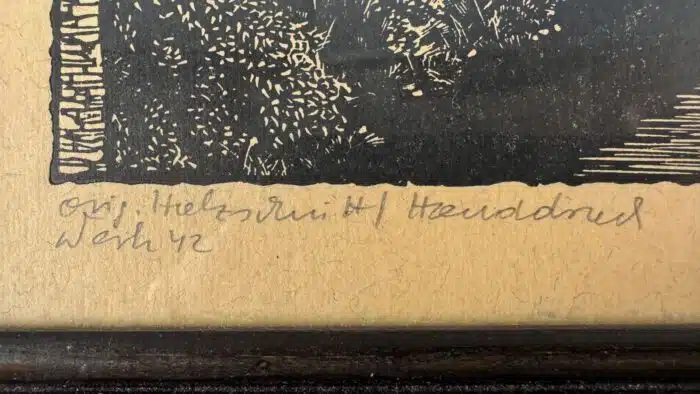 orig. Holzschnitt / Handdruck
Werk 42